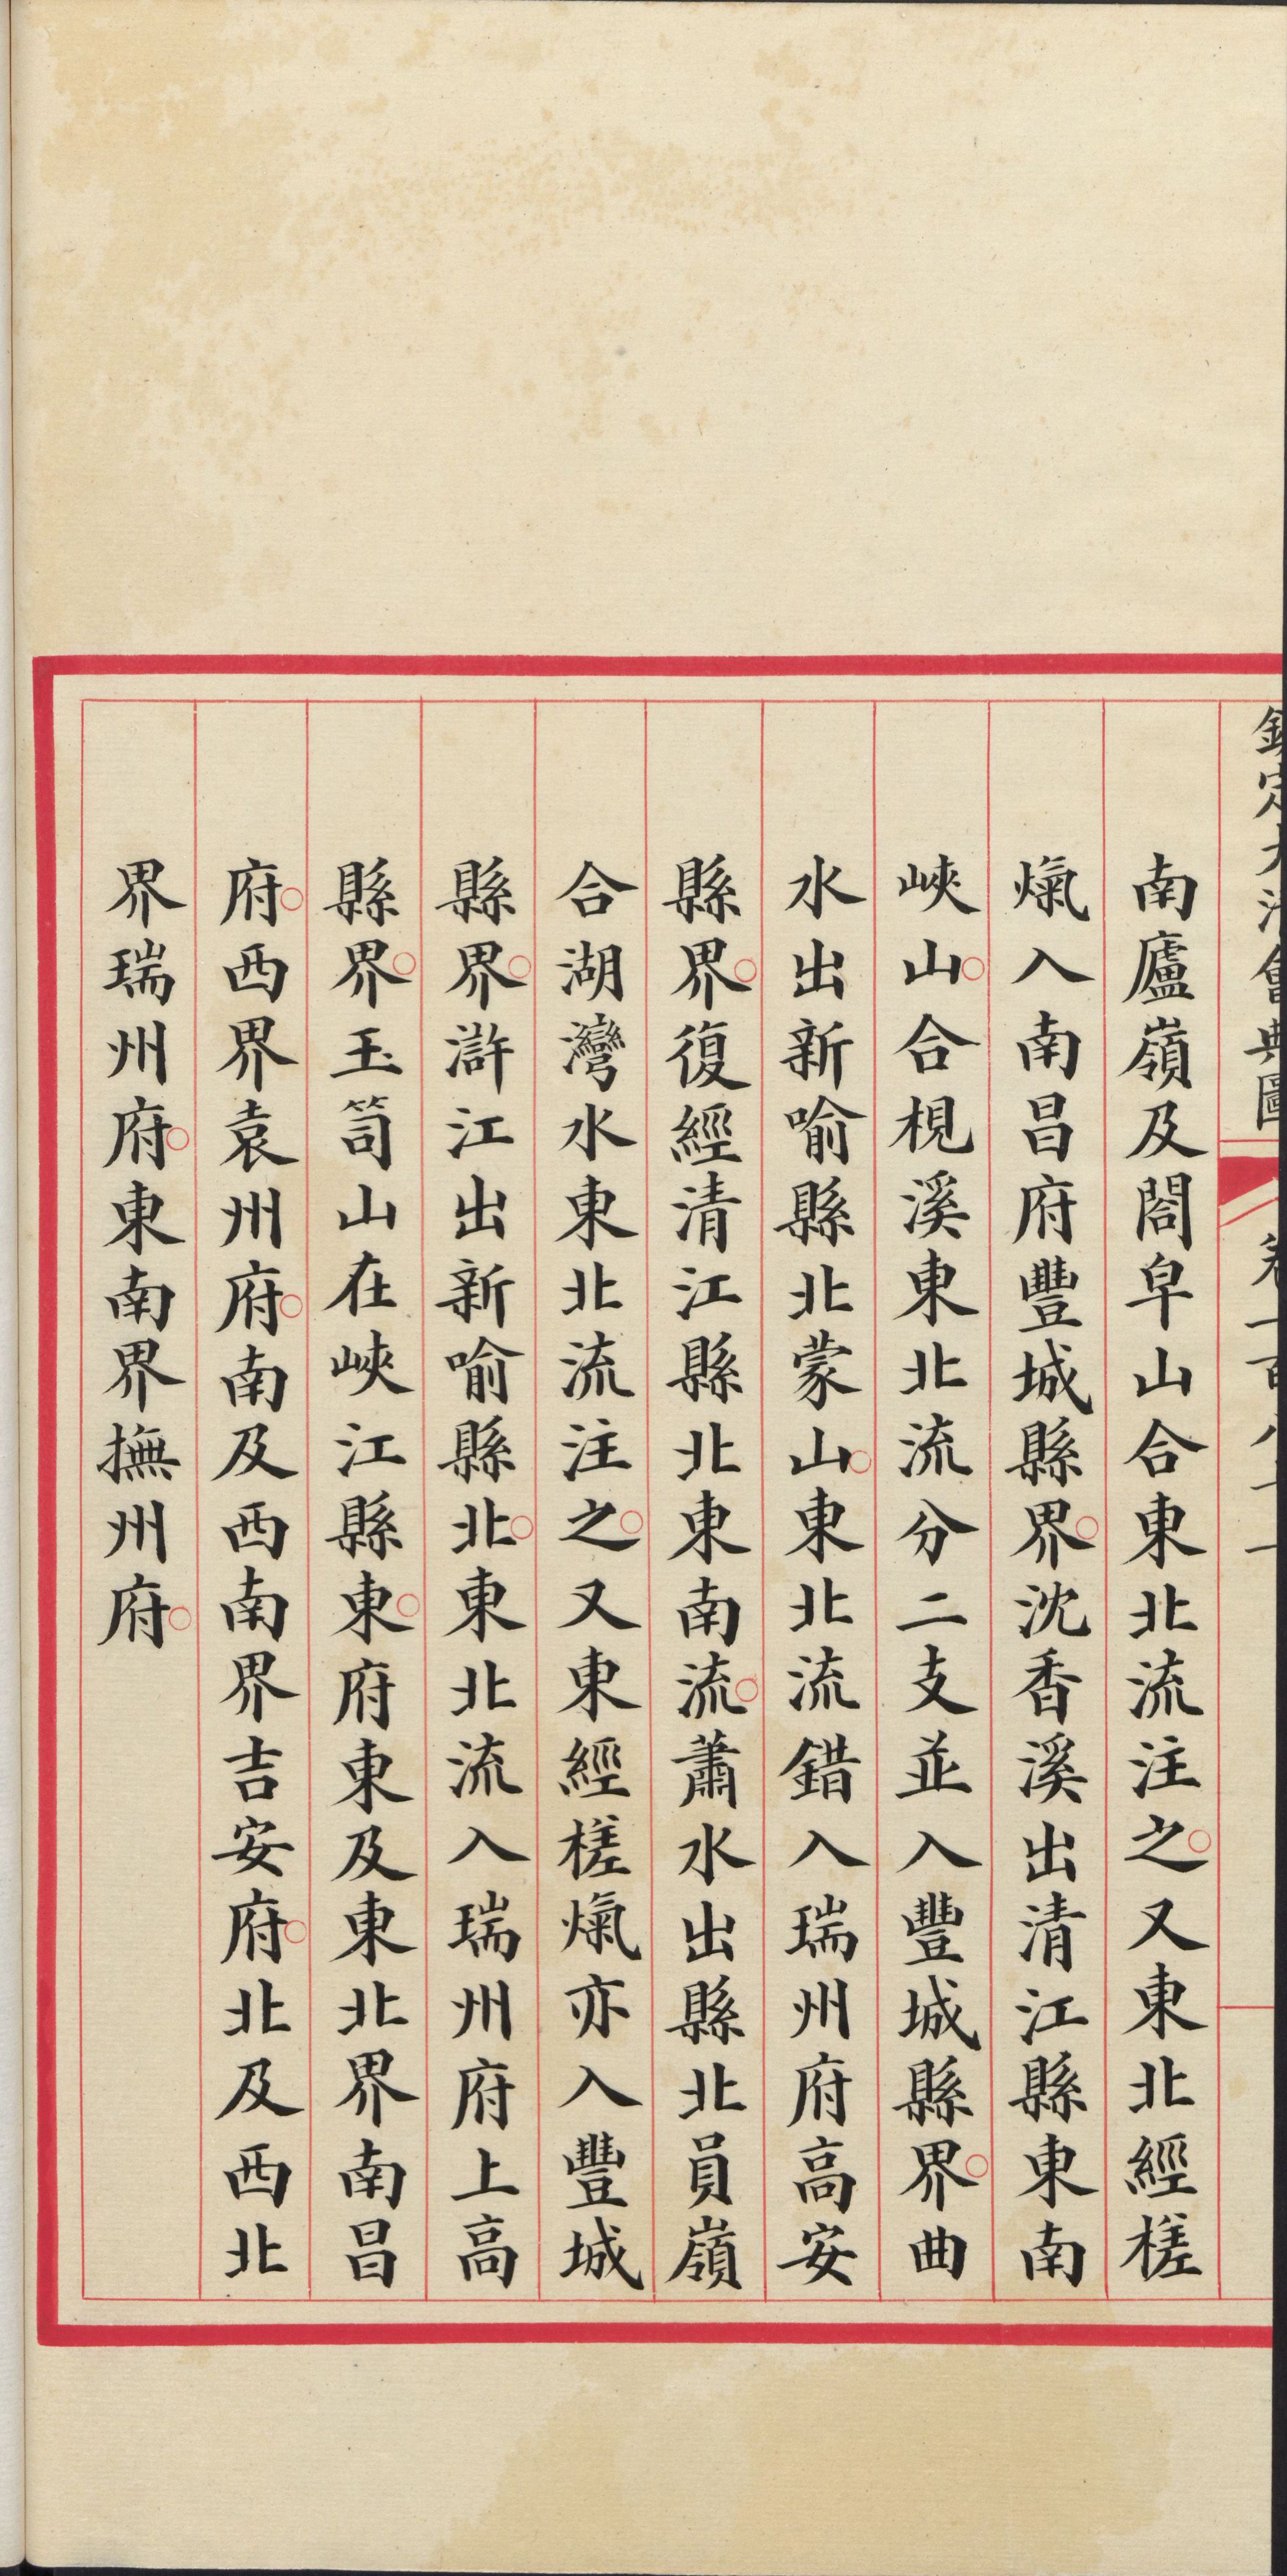 欽定大清會典圖 卷一百八十一
南廬嶺及閤皁山合東北流注之。又東北經槎
熂入南昌府豐城縣界。沈香溪出清江縣東南
峽山。合梘溪東北流分二支並入豐城縣界。曲
水出新喻縣北蒙山。東北流錯入瑞州府高安
縣界。復經清江縣北東南流。蕭水出縣北員嶺
合湖灣水東北流注之。又東經槎熂亦入豐城
縣界。滸江出新喻縣北。東北流入瑞州府上高
縣界。玉笥山在峽江縣東。府東及東北界南昌
府。西界袁州府。南及西南界吉安府。北及西北
界瑞州府。東南界撫州府。